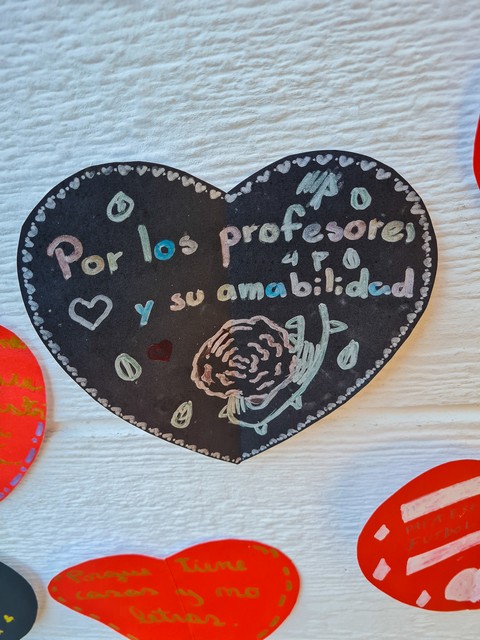 Por los profesores
y su amabilidad
Porque tiene
casas y no
letras.